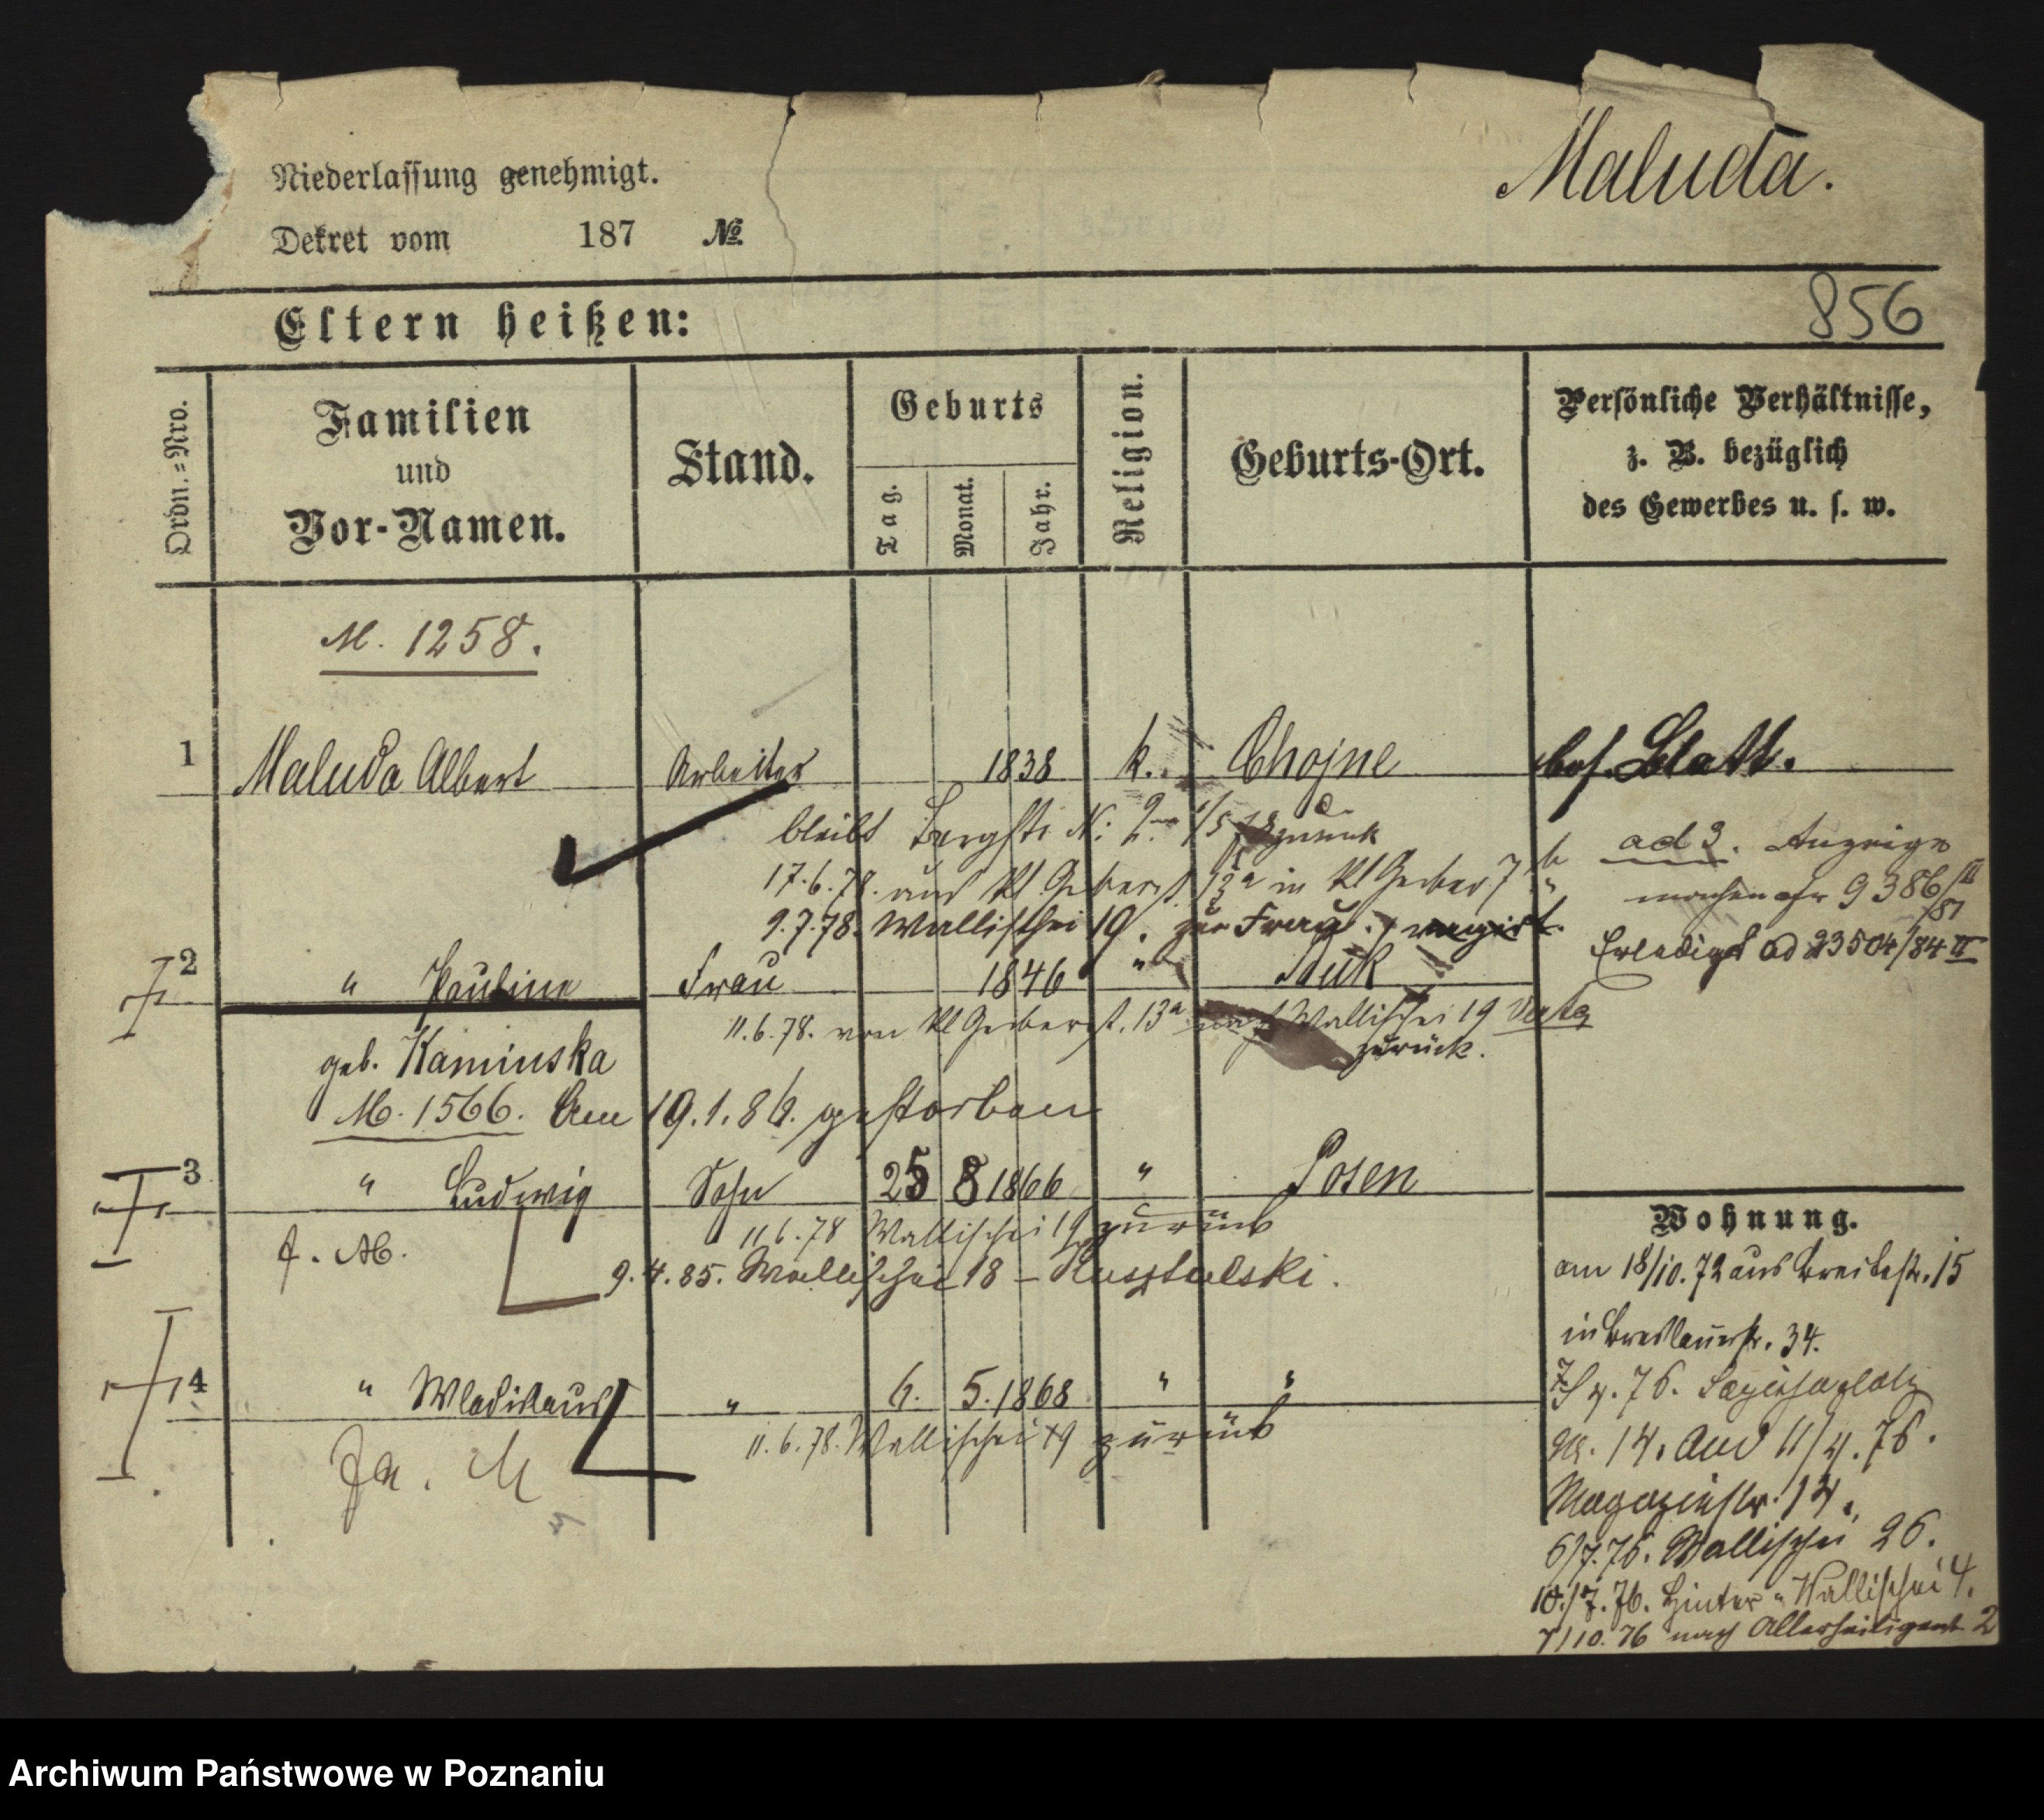 Maluda.
Niederlassung genehmigt.
Dekret vom 187 No.
856
Eltern heißen:
Ordn.=Nro.
Familien
und
Vor-Namen.
Stand.
Geburts
Tag.
Monat.
Jahr.
Religion.
Geburts-Ort.
Persönliche Verhältnisse,
z. B. bezüglich
des Gewerbes u. s. w.
M. 1258.
1 Maluda Albert Arbeiter 1838 k. Chojne bes. Blatt.
bleibt Bergstr. N: zurück
17.6.78. aus Kl Gerberst. 13a in Kl Gerber 7
9.7.78. Wallischei 19. zur Frau.
ad 3. Anzeige
9386/III
/81
Erledigt ad 23504/84 II
2 " Pauline Frau 1846 " Buk
11.6.78. von Kl Gerberst. 13a nach Wallischei 19
zurück.
geb. Kaminska
M. 1566. Am 19.1.86. gestorben
3 " Ludwig Sohn 25 8 1866 " Posen
11.6.78 Wallischei 19 zurück
f. M.
9.4.85. Wallischei 18 –
4 " Wladislaus " 6. 5. 1868 " "
11.6.78. Wallischei 19 zurück
Wohnung.
am 18/10.72 aus Breitestr. 15
in Breslauerstr. 34.
76.
No. 14. Aus 11/4.76.
Magazinstr. 14.
6/7.76. Wallischei 26.
10./7.76. Hinter-Wallischei 4.
7/10.76 nach Allerheiligenst 2
Archiwum Państwowe w Poznaniu